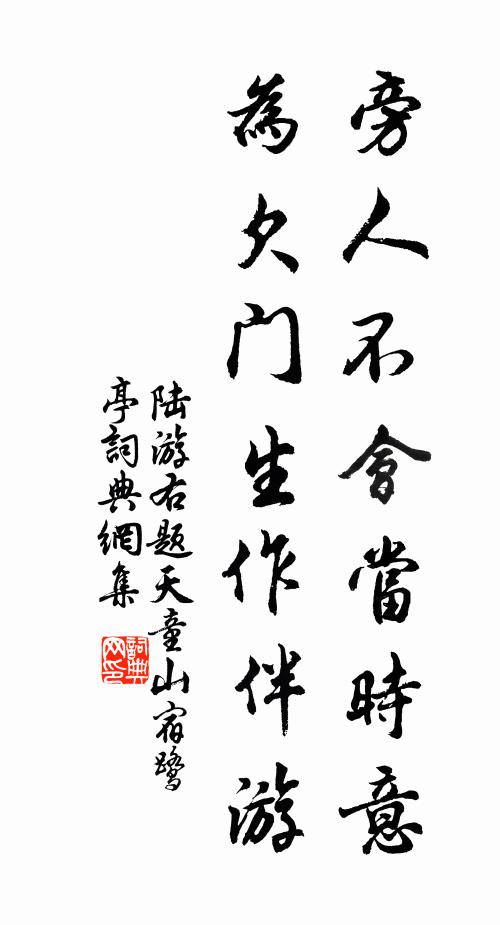 旁人不會當時意
為欠門生作伴游
陆游右题天童山宿鹭
亭詞典網集
詞典
网印